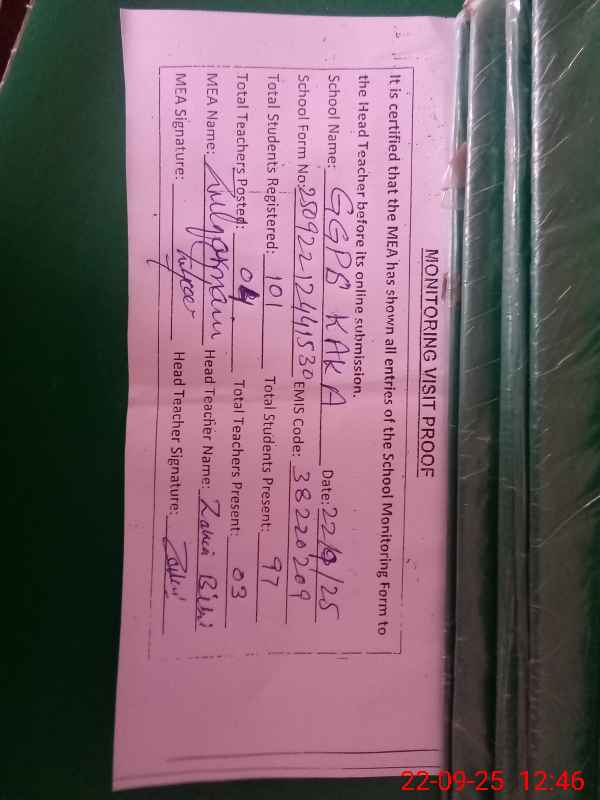 MONITORING VISIT PROOF
It is certified that the MEA has shown all entries of the School Monitoring Form to
the Head Teacher before its online submission.
School Name: GGPS KAKA Date: 22/9/25
School Form No: 250922124441530 EMIS Code: 38220209
Total Students Registered: 101 Total Students Present: 97
Total Teachers Posted: 04 Total Teachers Present: 03
MEA Name: Head Teacher Name: Bibi
MEA Signature: Head Teacher Signature:
22-09-25 12:46